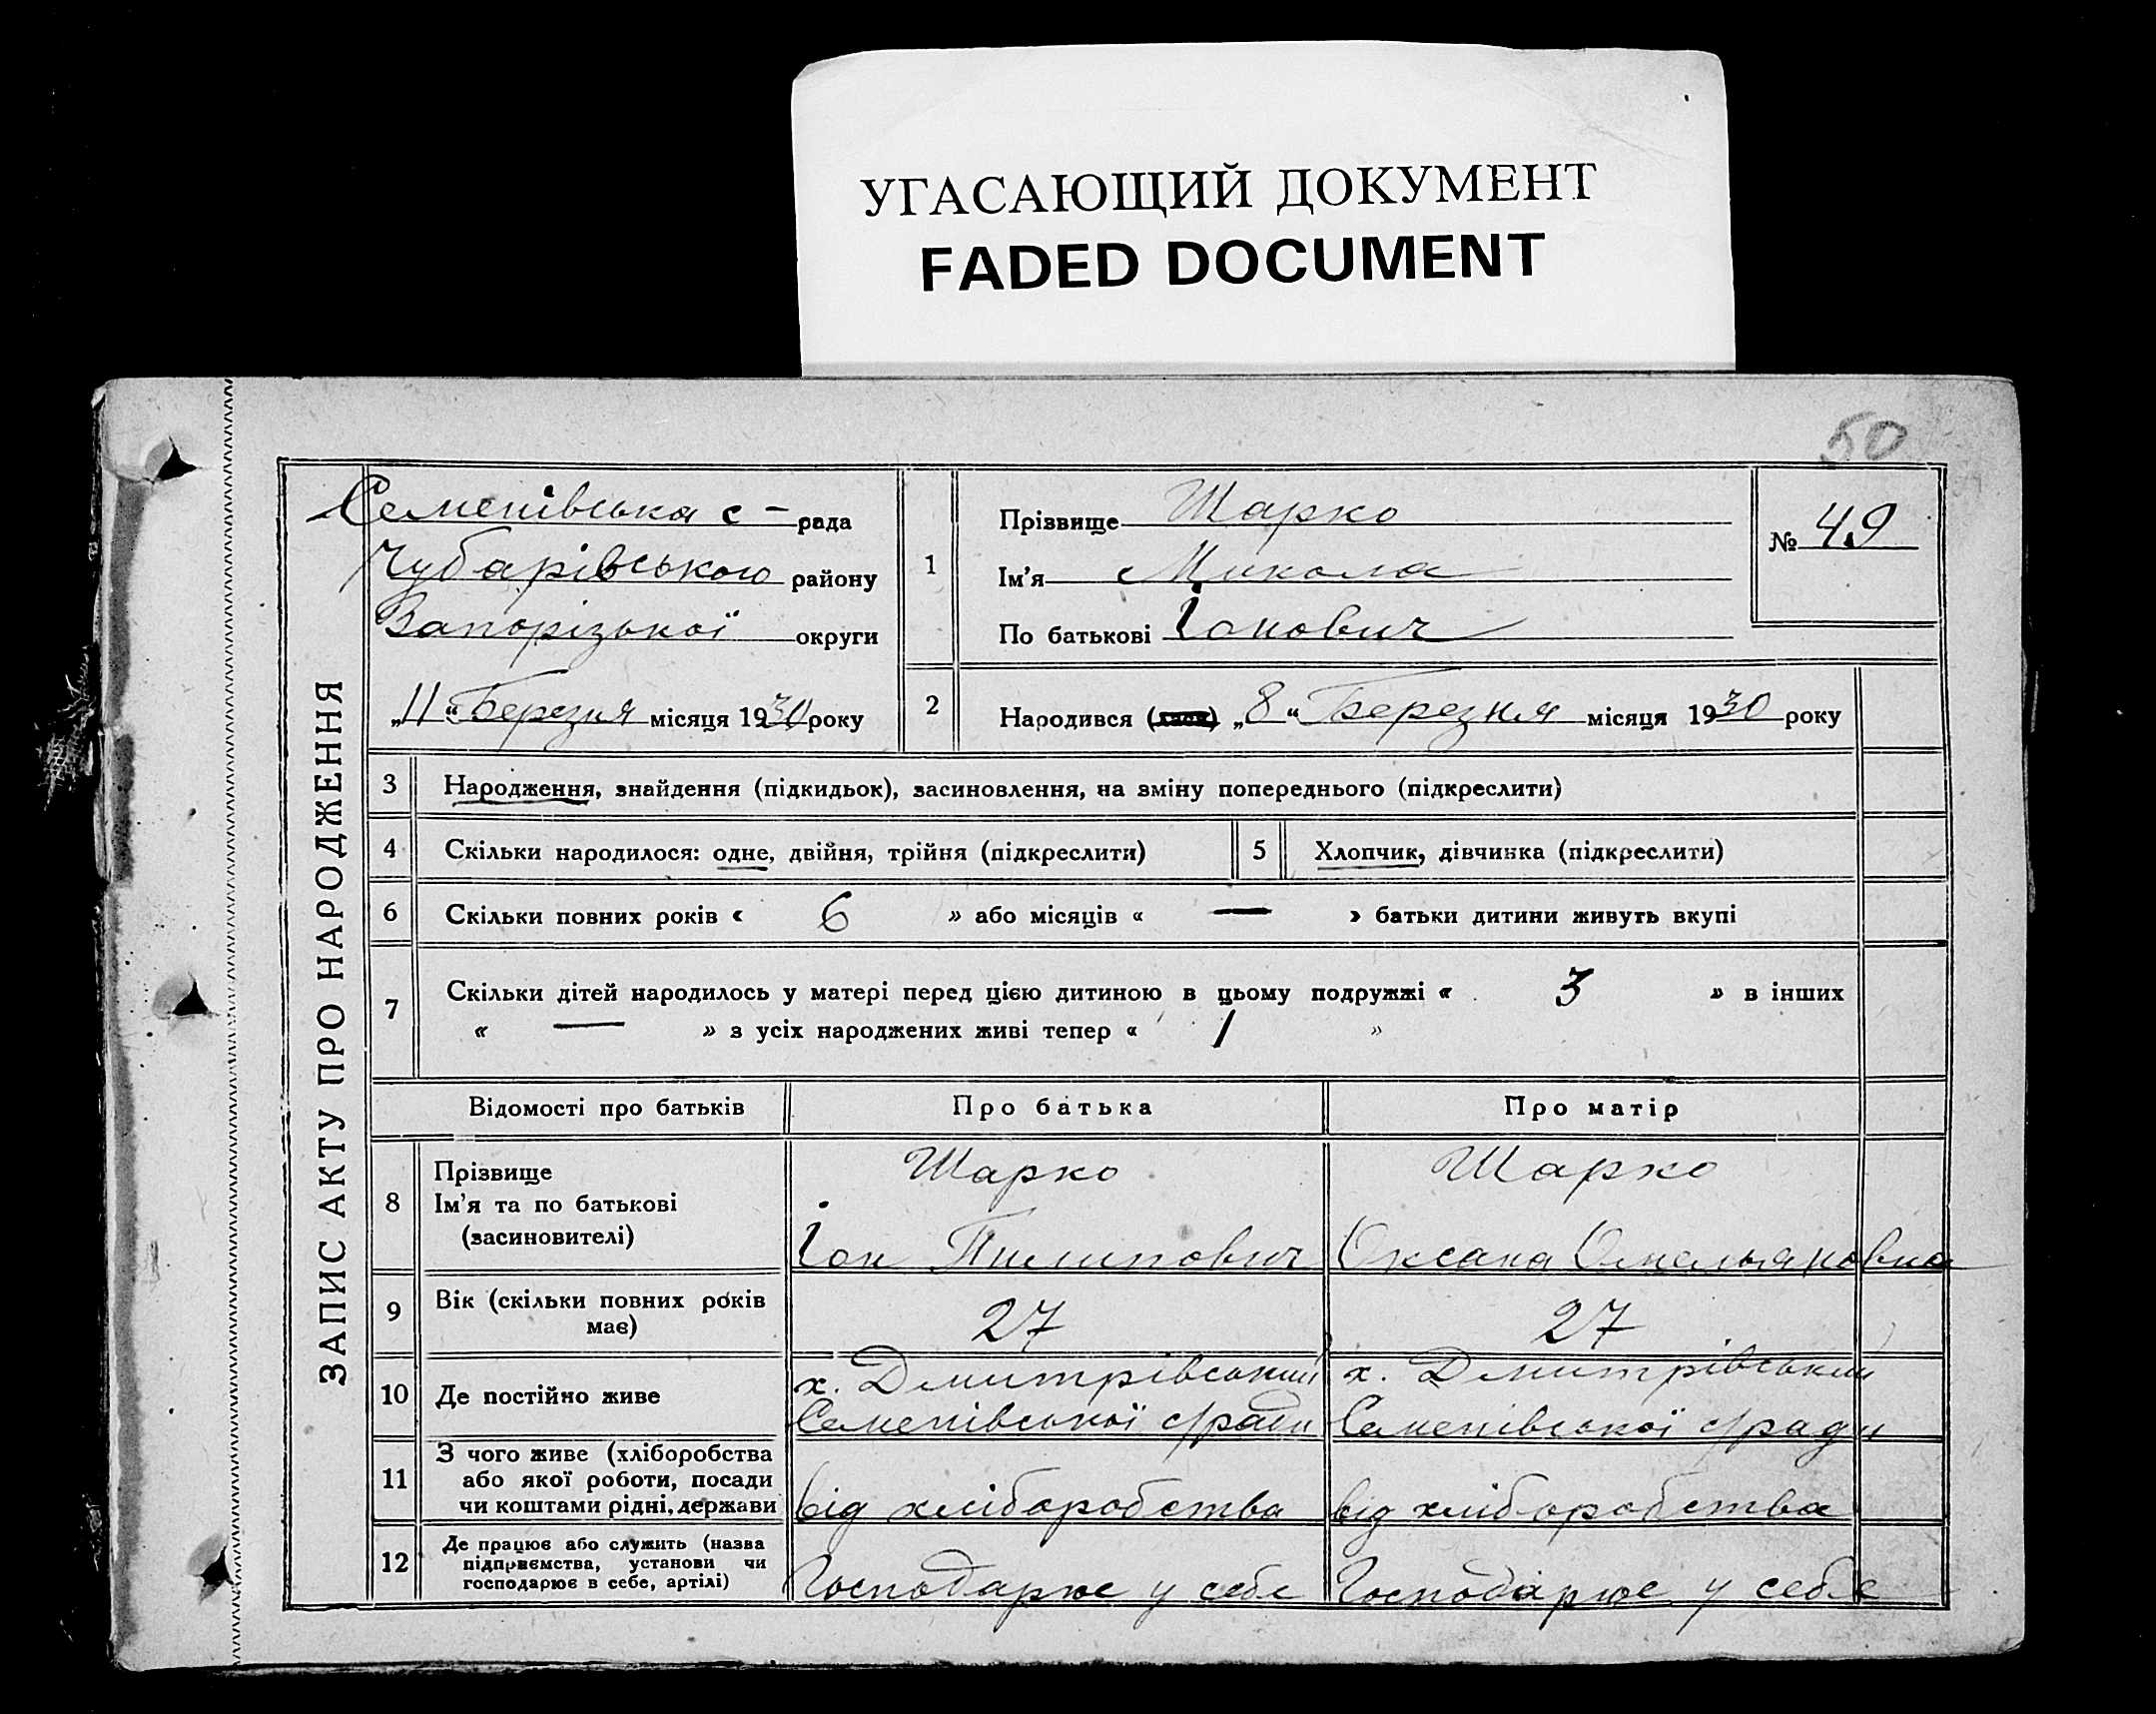 УГАСАЮЩИЙ ДОКУМЕНТ
FADED DOCUMENT
50
ЗАПИС АКТУ ПРО НАРОДЖЕННЯ
Семенівська с - рада
Чубарівського району
Запорізької округи
„11“ Березня місяця 1930 року
1
Прізвище Шарко
Ім'я Микола
По батькові Іонович
№ 49
2
Народився „8“ Березня місяця 1930 року
3 Народження, знайдення (підкидьок), засиновлення, на зміну попереднього (підкреслити)
4 Скільки народилося: одне, двійня, трійня (підкреслити)
5 Хлопчик, дівчинка (підкреслити)
6 Скільки повних років « 6 » або місяців « — » батьки дитини живуть вкупі
7 Скільки дітей народилось у матері перед цією дитиною в цьому подружжі « 3 » в інших
« — » з усіх народжених живі тепер « 1 »
Відомості про батьків Про батька Про матір
8 Прізвище
Ім'я та по батькові
(засиновителі)
Шарко
Іон Пилипович
Шарко
Оксана Омельяновна
9 Вік (скільки повних років
має)
27
27
10 Де постійно живе
х. Дмитрівський
Семенівської с/ради
х. Дмитрівський
Семенівської с/ради
11 З чого живе (хліборобства
або якої роботи, посади
чи коштами рідні, держави
від хліборобства
від хліборобства
12 Де працює або служить (назва
підприємства, установи чи
господарює в себе, артілі)
Господарює у себе
Господарює у себе